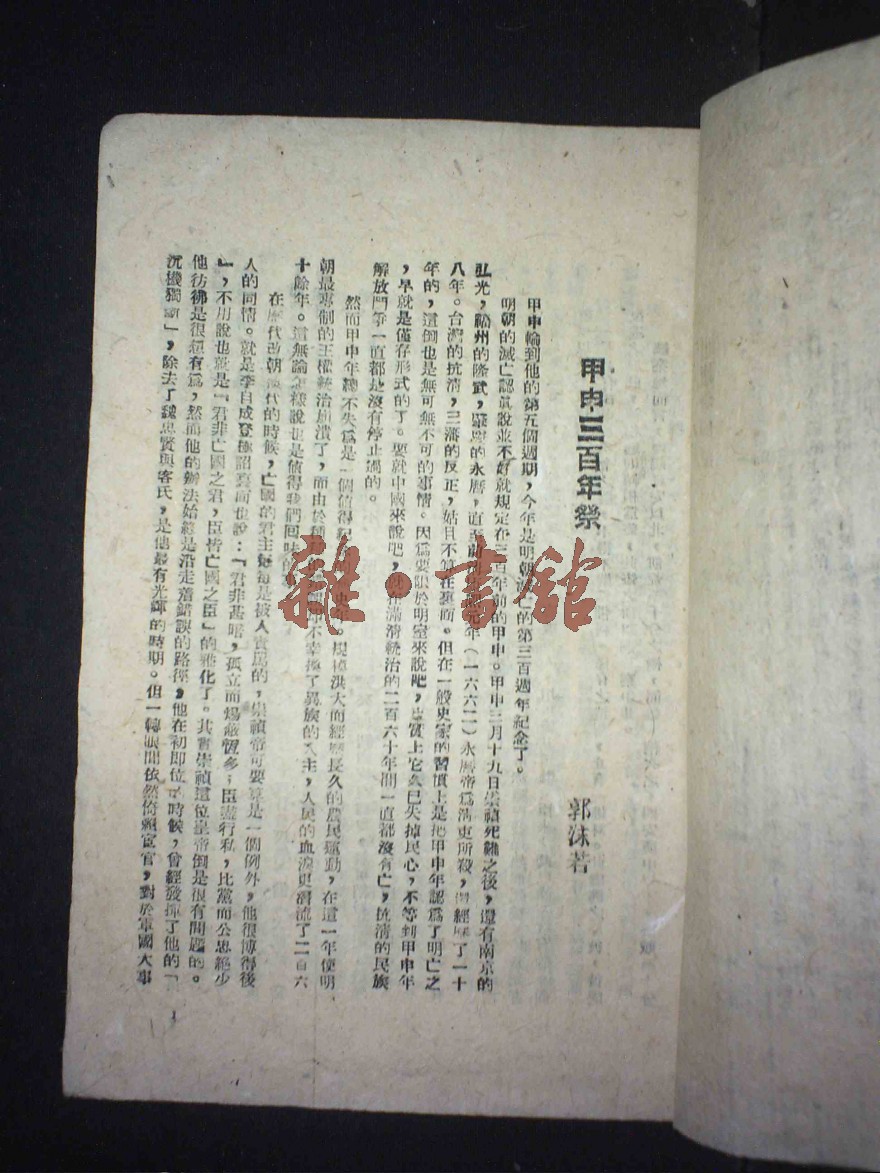 甲申三百年祭
郭沫若
甲申輪到他的第五個週期，今年是明朝滅亡的第三百週年紀念了。
明朝的滅亡認眞說並不好就規定在三百年前的甲申。甲申三月十九日崇禎死難之後，還有南京的
弘光，福州的隆武，肇慶的永曆，直至元年（一六六二）永曆帝爲淸吏所殺，還經歷了一十
八年。台灣的抗淸，三藩的反正，姑且不算在裏面。但在一般史家的習慣上是把甲申年認爲了明亡之
年的，這倒也是無可無不可的事情。因爲要限於明室來說吧，事實上它久已失掉民心，不等到甲申年
，早就是僅存形式的了。要就中國來說吧，就在滿淸統治的二百六十年間一直都沒有亡，抗淸的民族
解放鬥爭一直都是沒有停止過的。
然而甲申年總不失爲是一個値得紀年。規模洪大而經歷長久的農民運動，在這一年使明
朝最專制的王權統治崩潰了，而由於種不幸換了異族的入主，人民的血淚更潛流了二百六
十餘年。這無論怎樣說也是値得我們回味的
在歷代改朝換代的時候，亡國的君主每每是被人責罵的，崇禎帝可要算是一個例外，他很博得後
人的同情。就是李自成登極詔裏面也說：『君非甚暗，孤立而煬蔽恆多；臣盡行私，比黨而公忠絕少
』，不用說也就是『君非亡國之君，臣皆亡國之臣』的雅化了。其實崇禎這位皇帝倒是很有問題的。
他彷彿是很想有爲，然而他的辦法始終是沿走着錯誤的路徑。他在初卽位時候，曾經發揮了他的『
沉機獨斷』，除去了魏忠賢與客氏，是他最有光輝的時期。但一轉眼間依然倚賴宦官，對於軍國大事
1
雜·書館